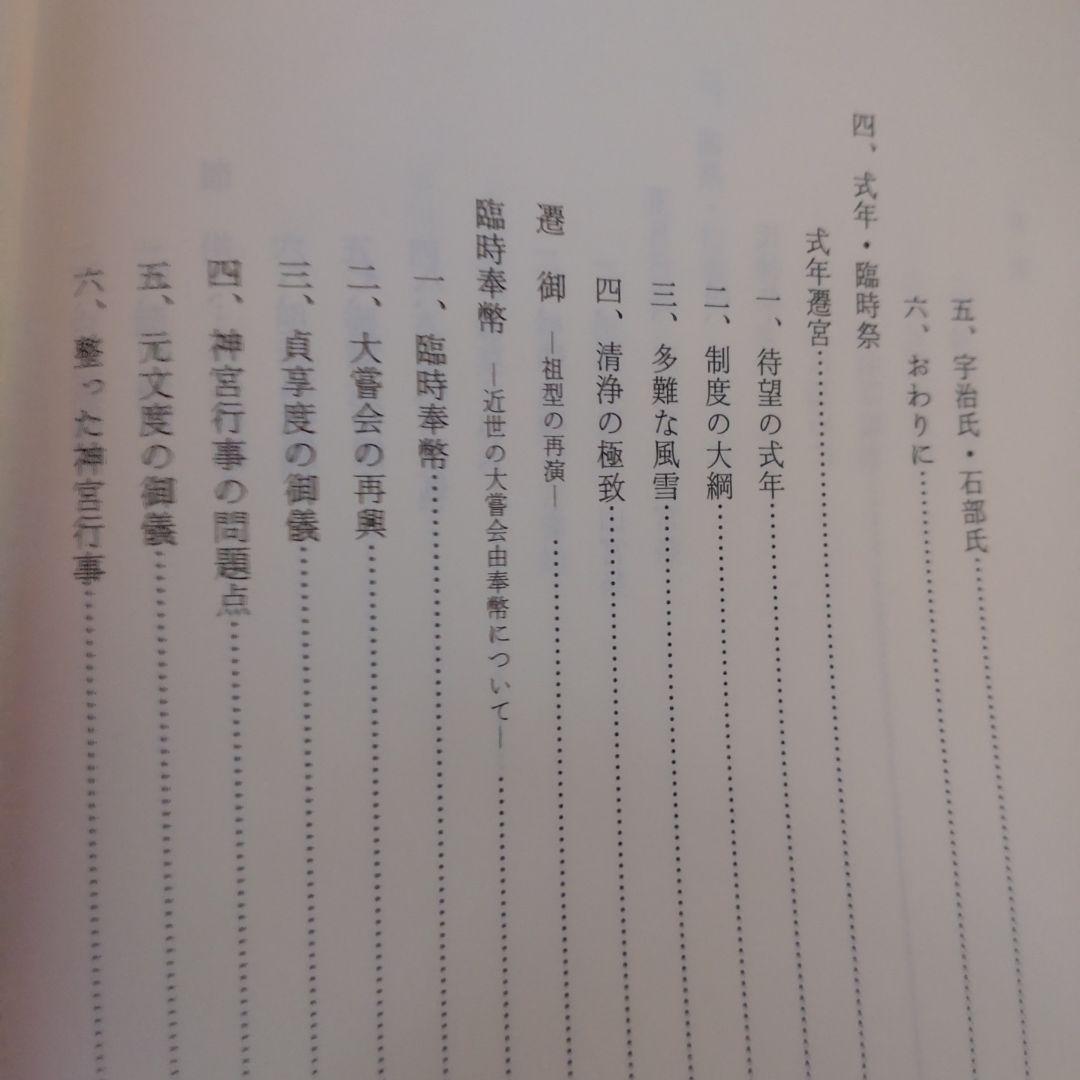 五、宇治氏・石部氏……………………
六、おわりに……………………
四、式年・臨時祭
式年遷宮……………………
一、待望の式年……………………
二、制度の大綱……………………
三、多難な風雪……………………
四、清浄の極致……………………
遷御 ―祖型の再演― ……………………
臨時奉幣 ―近世の大嘗会由奉幣について― ……………………
一、臨時奉幣……………………
二、大嘗会の再興……………………
三、貞享度の御儀……………………
四、神宮行事の問題点……………………
五、元文度の御儀……………………
六、整った神宮行事……………………